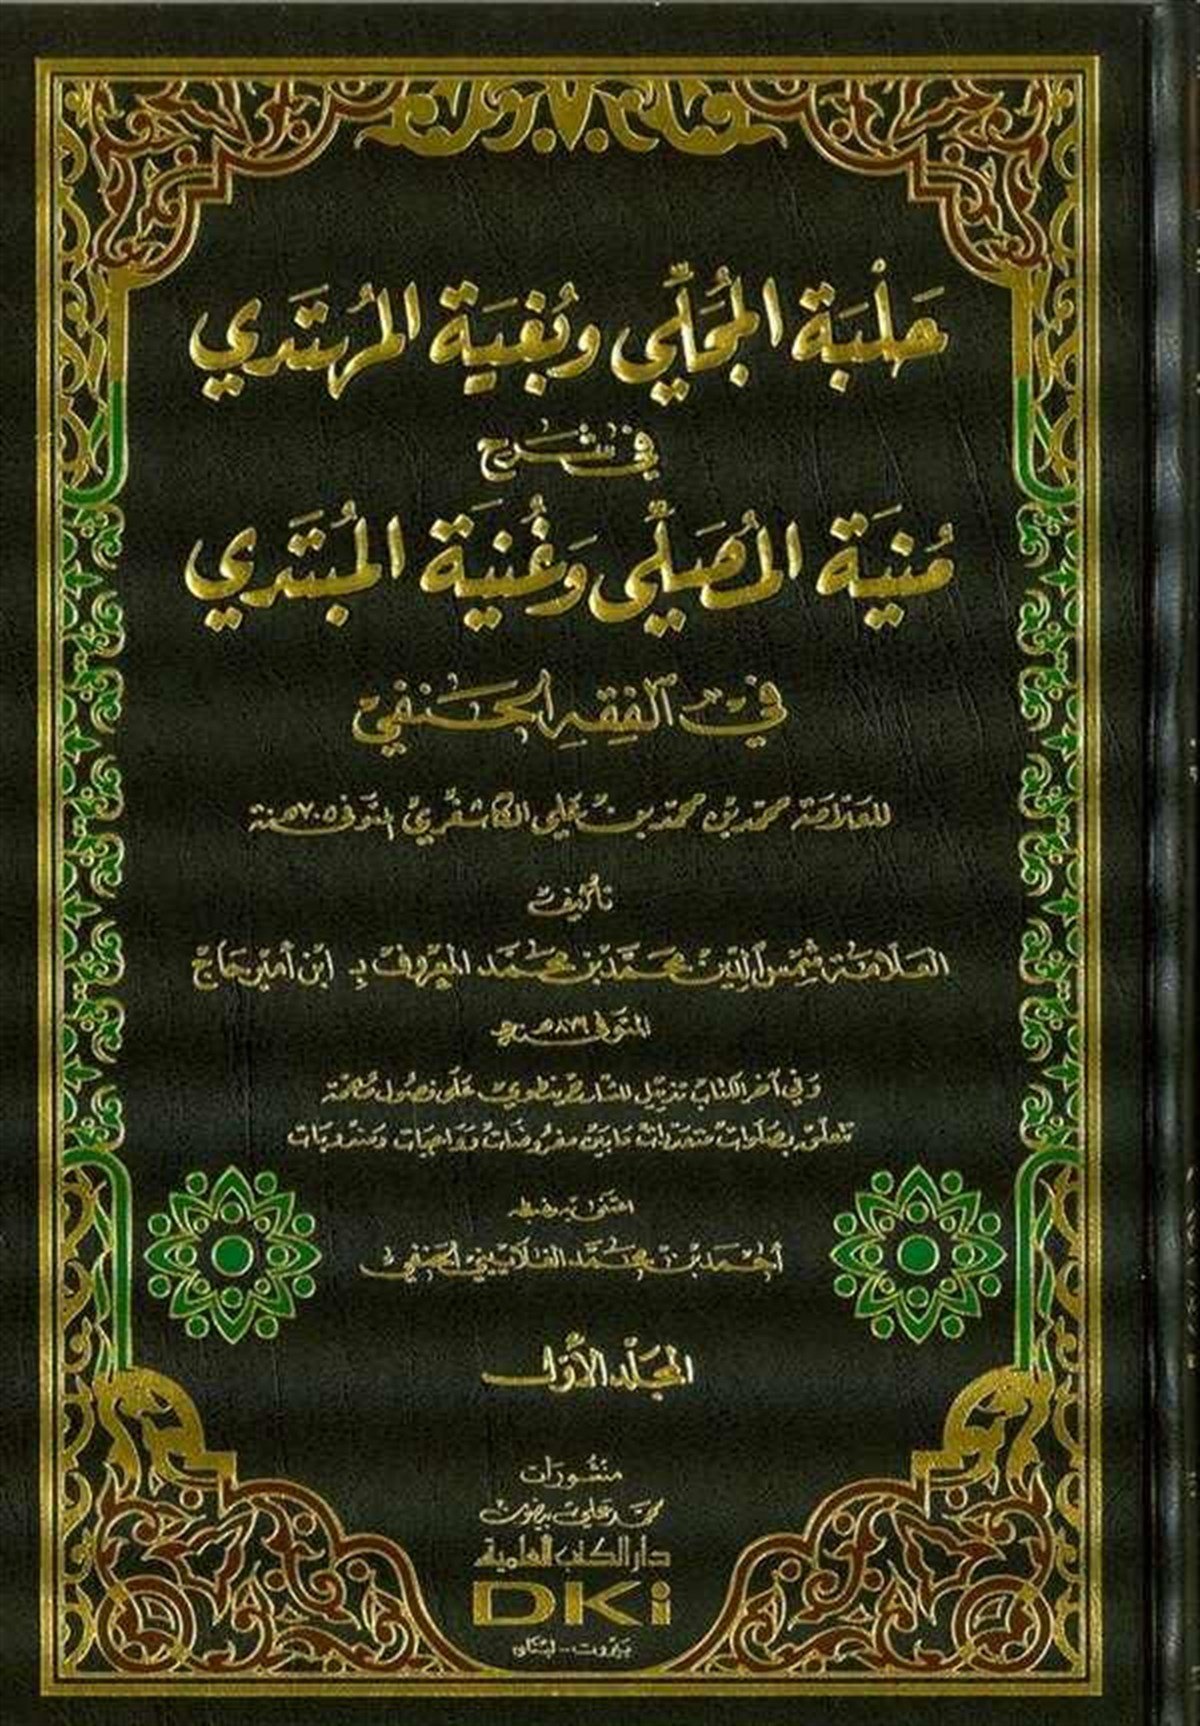 حَلْبَة المُجَلِّي وبُغيَة المُهتَدي
في شرح
مُنيَة المُصَلِّي وَغُنيَة المُبتَدي
في الفِقهِ الحَنفي
للعلّامة محمّد بن محمّد بن علي الكاشغري المتوفى ٧٠٥ هـنة
تأليف
العلّامة شمس الدين محمَّد بن محمَّد المعروف بـ ابن أمير حاج
المتوفى ٨٧٩ هـنة
وفي آخر الكتاب تذييل للشارح ينطوي على فصول مهمة
تتعلق بصلوات متعددات ما بين مفروضات وواجبات ومندوبات
اعتنى به وضبطه
أحمد بن محمَّد الغلاييني الحنفي
المجلّد الأوّل
منشورات
محمد علي بيضون
دار الكتب العلمية
DKi
بيروت - لبنان